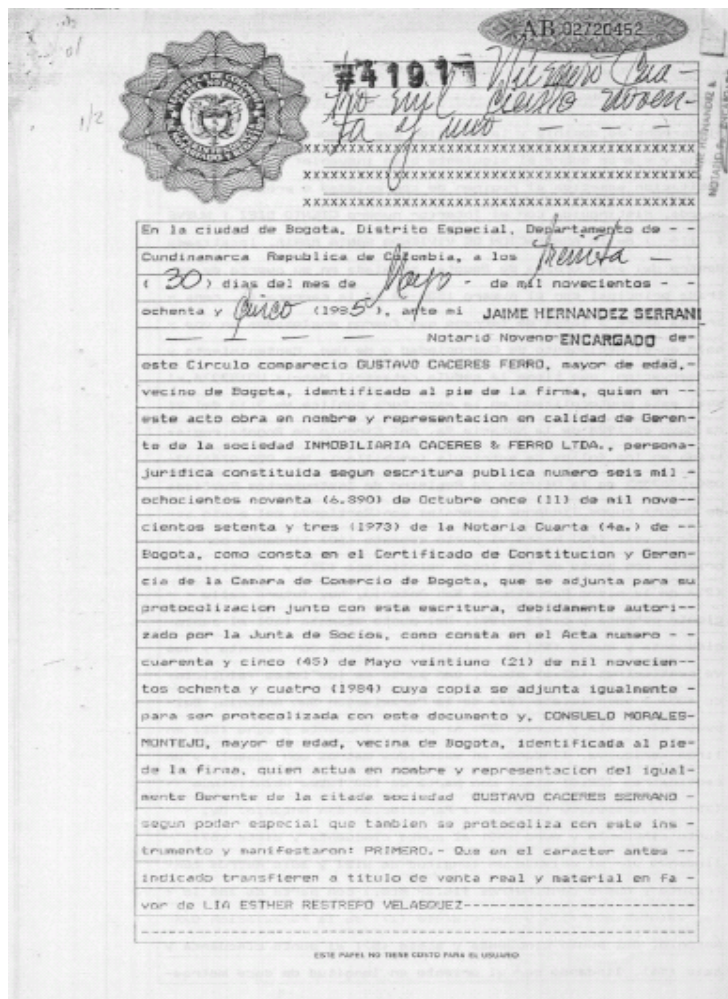 AB 02720452
#4191 Número Cua-
tro mil ciento noven-
ta y uno - - -
xxxxxxxxxxxxxxxxxxxxxxxxxxxxxxxxxxxxxxx
xxxxxxxxxxxxxxxxxxxxxxxxxxxxxxxxxxxxxxx
xxxxxxxxxxxxxxxxxxxxxxxxxxxxxxxxxxxxxxx
En la ciudad de Bogota, Distrito Especial, Departamento de - -
Cundinamarca Republica de Colombia, a los Treinta -
( 30 ) dias del mes de Mayo - de mil novecientos - -
ochenta y Cinco (1985), ante mi JAIME HERNANDEZ SERRANI
- - - - Notario Noveno ENCARGADO de-
este Circulo comparecio GUSTAVO CACERES FERRO, mayor de edad,-
vecino de Bogota, identificado al pie de la firma, quien en --
este acto obra en nombre y representacion en calidad de Geren-
te de la sociedad INMOBILIARIA CACERES & FERRO LTDA., persona-
juridica constituida segun escritura publica numero seis mil -
ochocientos noventa (6.890) de Octubre once (11) de mil nove--
cientos setenta y tres (1973) de la Notaria Cuarta (4a.) de --
Bogota, como consta en el Certificado de Constitucion y Geren-
cia de la Camara de Comercio de Bogota, que se adjunta para su
protocolizacion junto con esta escritura, debidamente autori--
zado por la Junta de Socios, como consta en el Acta numero - -
cuarenta y cinco (45) de Mayo veintiuno (21) de mil novecien--
tos ochenta y cuatro (1984) cuya copia se adjunta igualmente -
para ser protocolizada con este documento y, CONSUELO MORALES-
MONTEJO, mayor de edad, vecina de Bogota, identificada al pie-
de la firma, quien actua en nombre y representacion del igual-
mente Gerente de la citada sociedad GUSTAVO CACERES SERRANO -
segun poder especial que tambien se protocoliza con este ins -
trumento y manifestaron: PRIMERO.- Que en el caracter antes --
indicado transfieren a titulo de venta real y material en fa -
vor de LIA ESTHER RESTREPO VELASQUEZ-----------------------
ESTE PAPEL NO TIENE COSTO PARA EL USUARIO